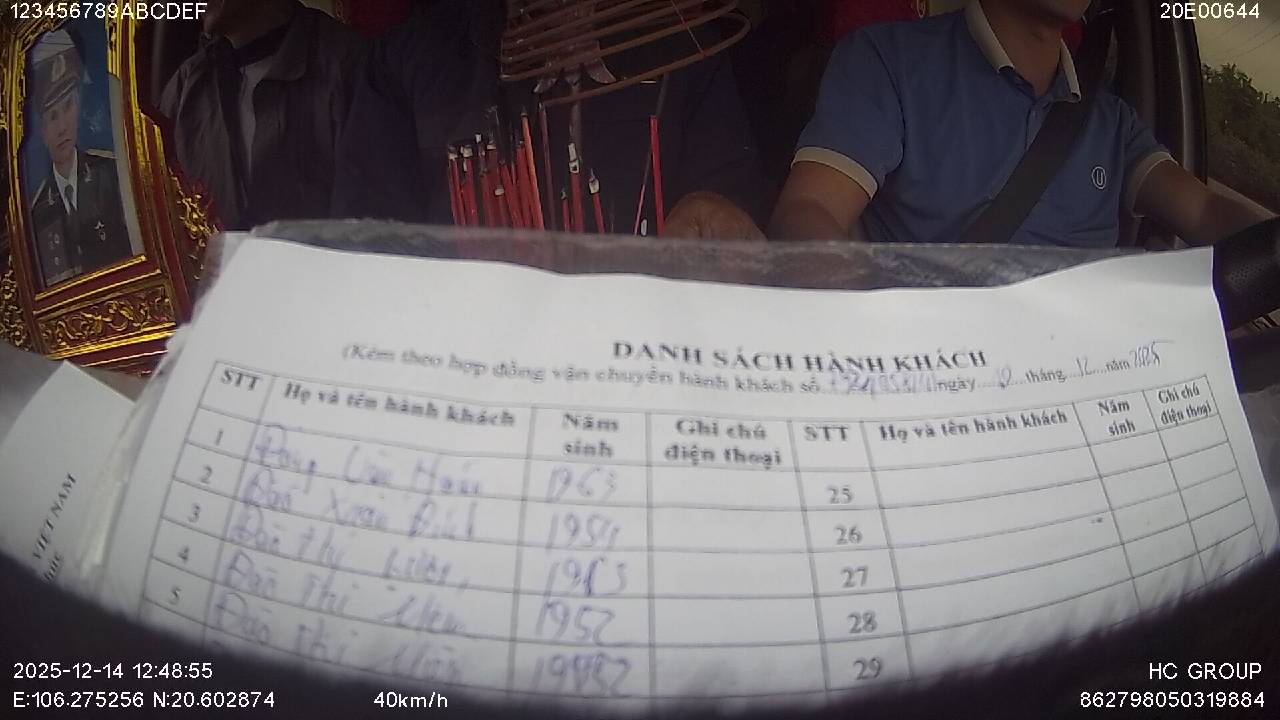 123456789ABCDEF
20E00644
DANH SÁCH HÀNH KHÁCH
(Kèm theo hợp đồng vận chuyển hành khách số ngày tháng 12 năm 2025
STT Họ và tên hành khách Năm sinh Ghi chú điện thoại STT Họ và tên hành khách Năm sinh Ghi chú điện thoại
1 1963 25
2 Đào Xuân 1954 26
3 Đào Thị 1963 27
4 Đào Thị 1952 28
5 Đào Thị 29
VIỆT NAM
2025-12-14 12:48:55
HC GROUP
E:106.275256 N:20.602874 40km/h
862798050319884